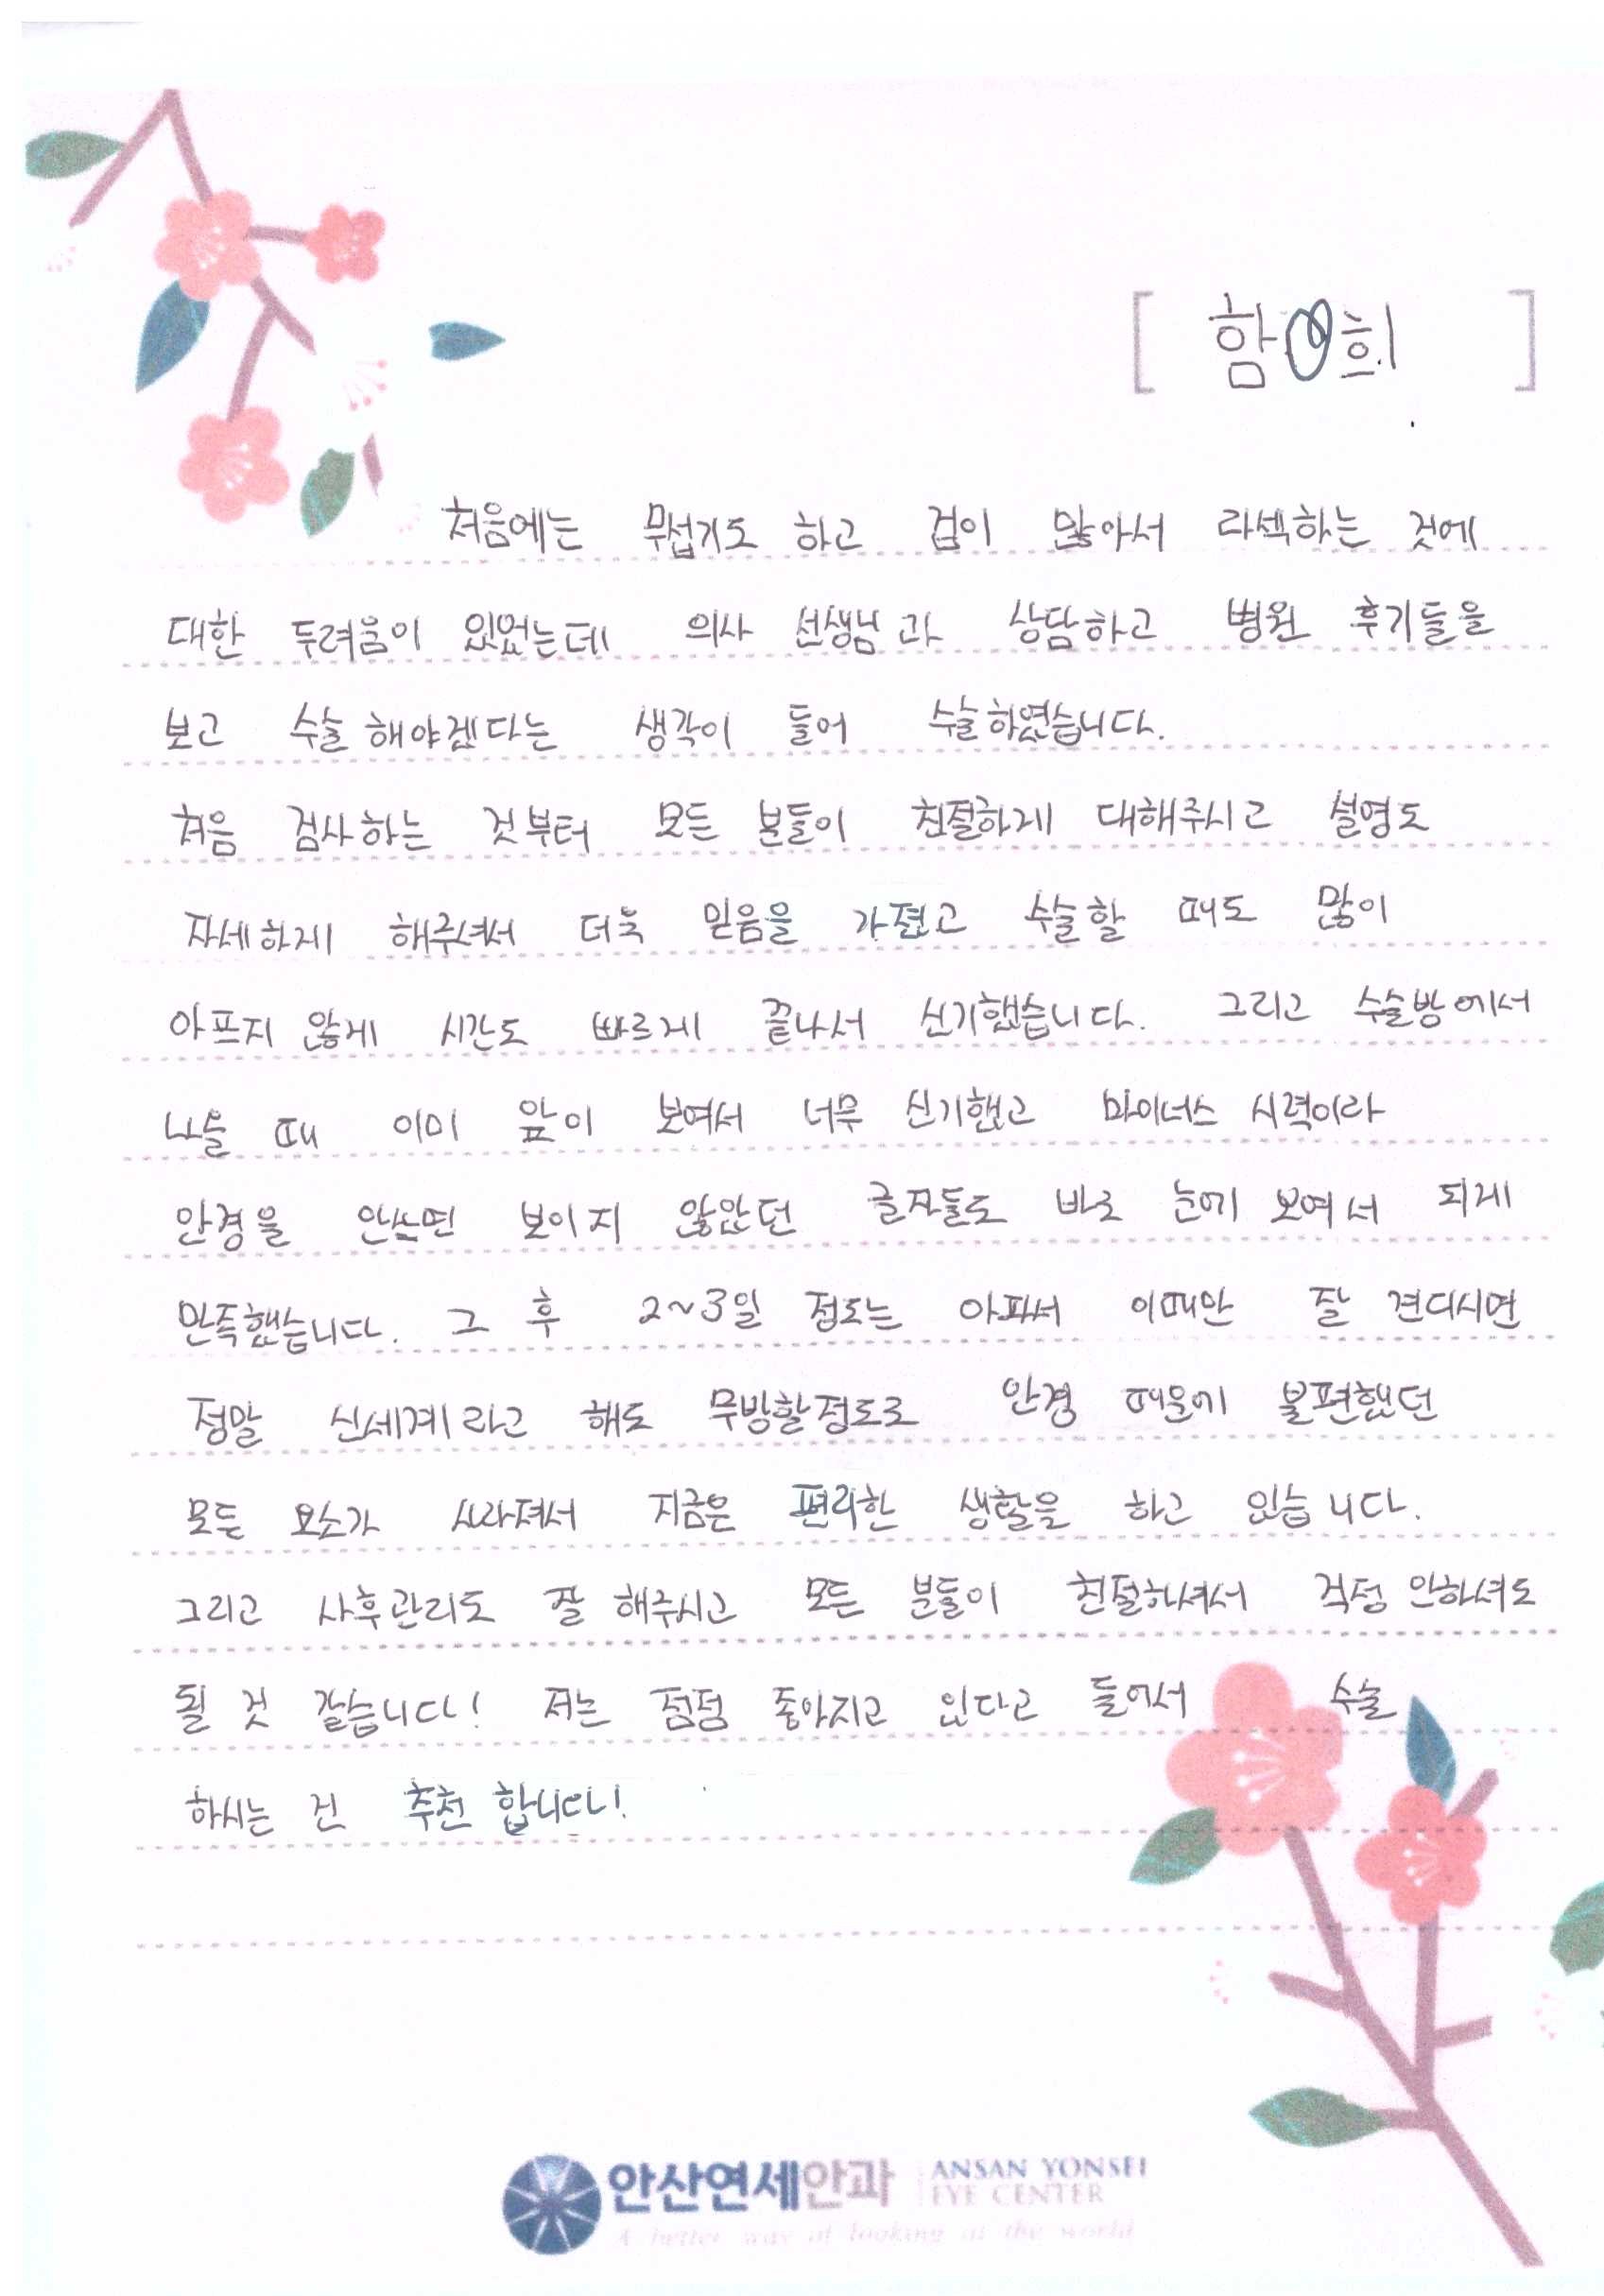 [ 함O희 ]
처음에는 무섭기도 하고 겁이 많아서 라섹하는 것에
대한 두려움이 있었는데 의사 선생님과 상담하고 병원 후기들을
보고 수술해야겠다는 생각이 들어 수술하였습니다.
처음 검사하는 것부터 모든 분들이 친절하게 대해주시고 설명도
자세하게 해주셔서 더욱 믿음을 가졌고 수술할 때도 많이
아프지 않게 시간도 빠르게 끝나서 신기했습니다. 그리고 수술방에서
나올 때 이미 앞이 보여서 너무 신기했고 마이너스 시력이라
안경을 안쓰면 보이지 않았던 글자들도 바로 눈에 보여서 되게
만족했습니다. 그 후 2~3일 정도는 아파서 이때만 잘 견디시면
정말 신세계라고 해도 무방할정도로 안경 때문에 불편했던
모든 요소가 사라져서 지금은 편리한 생활을 하고 있습니다.
그리고 사후관리도 잘 해주시고 모든 분들이 친절하셔서 걱정 안하셔도
될 것 같습니다! 저는 점점 좋아지고 있다고 들어서 수술
하시는 건 추천 합니다!
안산연세안과 ANSAN YONSEI
EYE CENTER
A better way of looking at the world